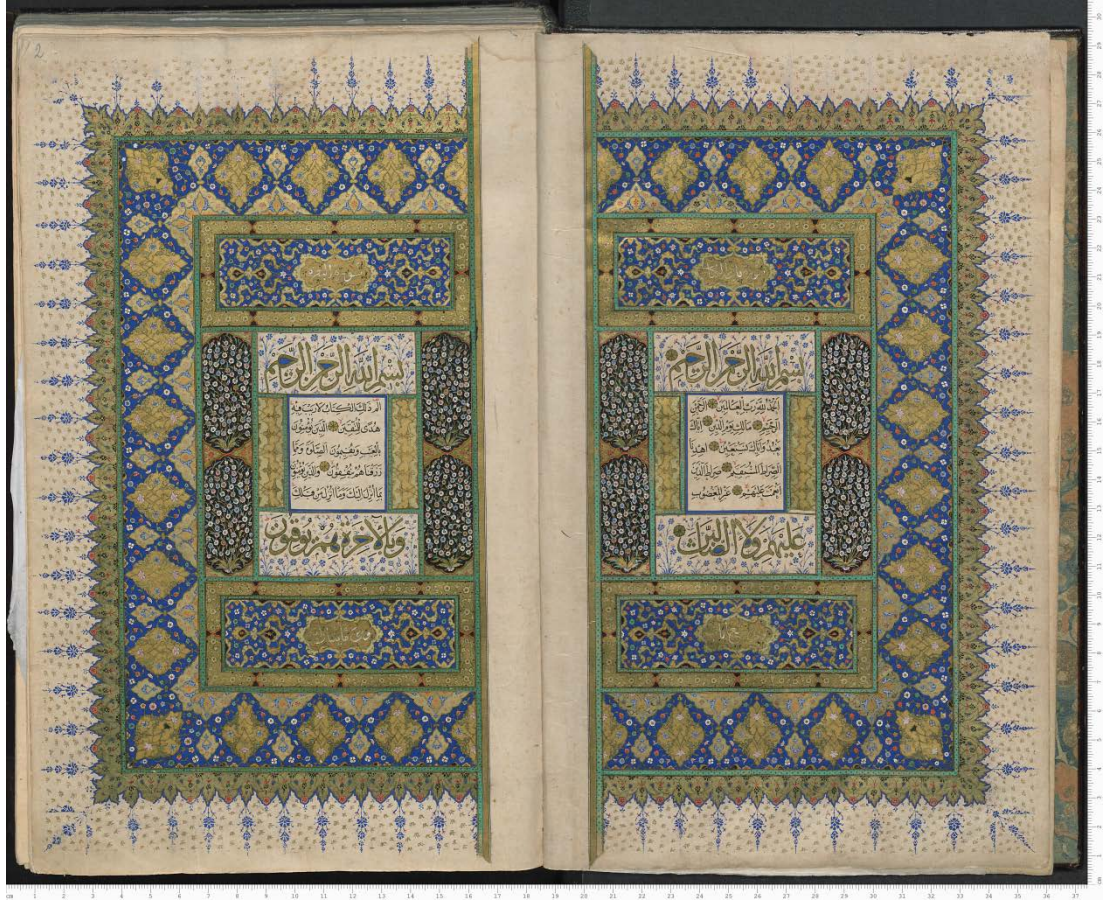 بسم الله الرحمن الرحيم
الحمد لله رب العالمين الرحمن
الرحيم مالك يوم الدين اياك
نعبد واياك نستعين اهدنا
الصراط المستقيم صراط الذين
انعمت عليهم غير المغضوب
عليهم ولا الضالين
2
بسم الله الرحمن الرحيم
الم ذلك الكتاب لا ريب فيه
هدى للمتقين الذين يؤمنون
بالغيب ويقيمون الصلوة ومما
رزقناهم ينفقون والذين يؤمنون
بما انزل اليك وما انزل من قبلك
وبالاخرة هم يوقنون